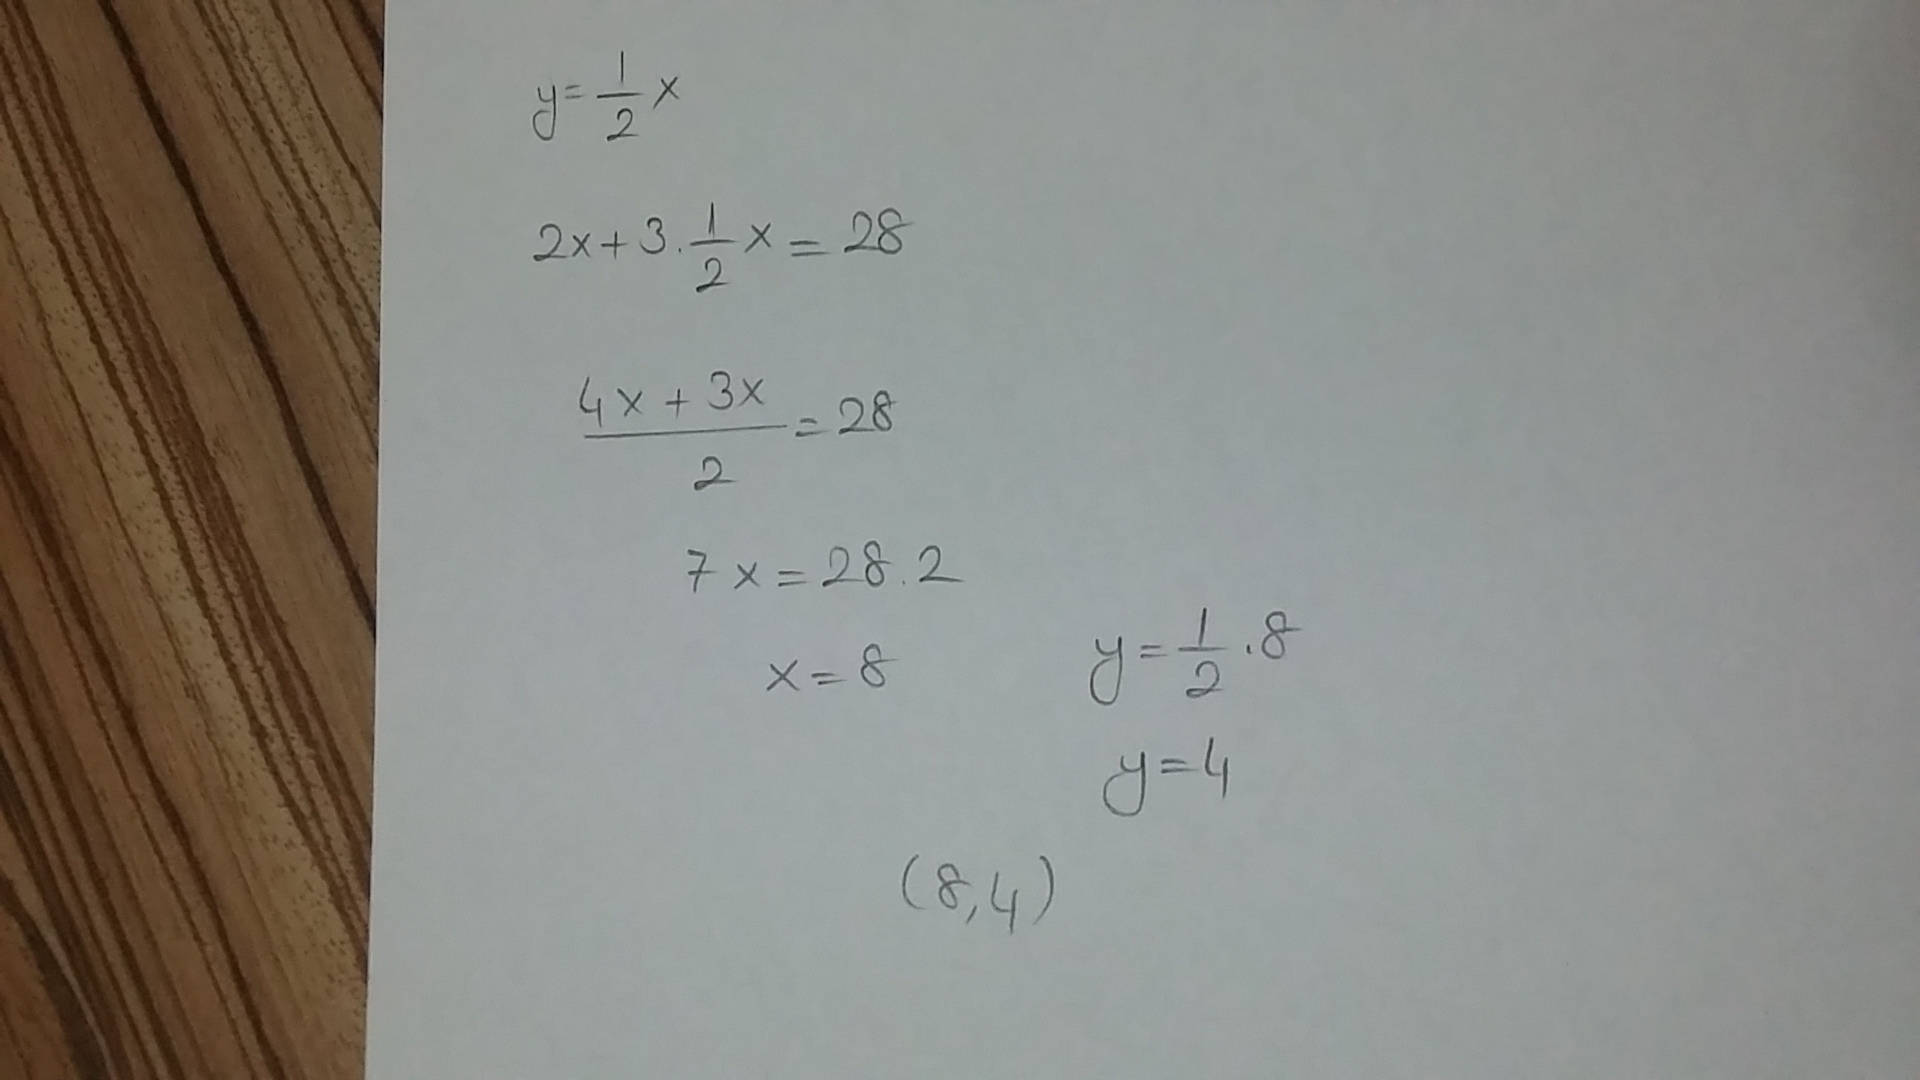 y = 1/2 x
2x + 3 . 1/2 x = 28
4x + 3x / 2 = 28
7x = 28 . 2
x = 8
y = 1/2 . 8
y = 4
(8,4)